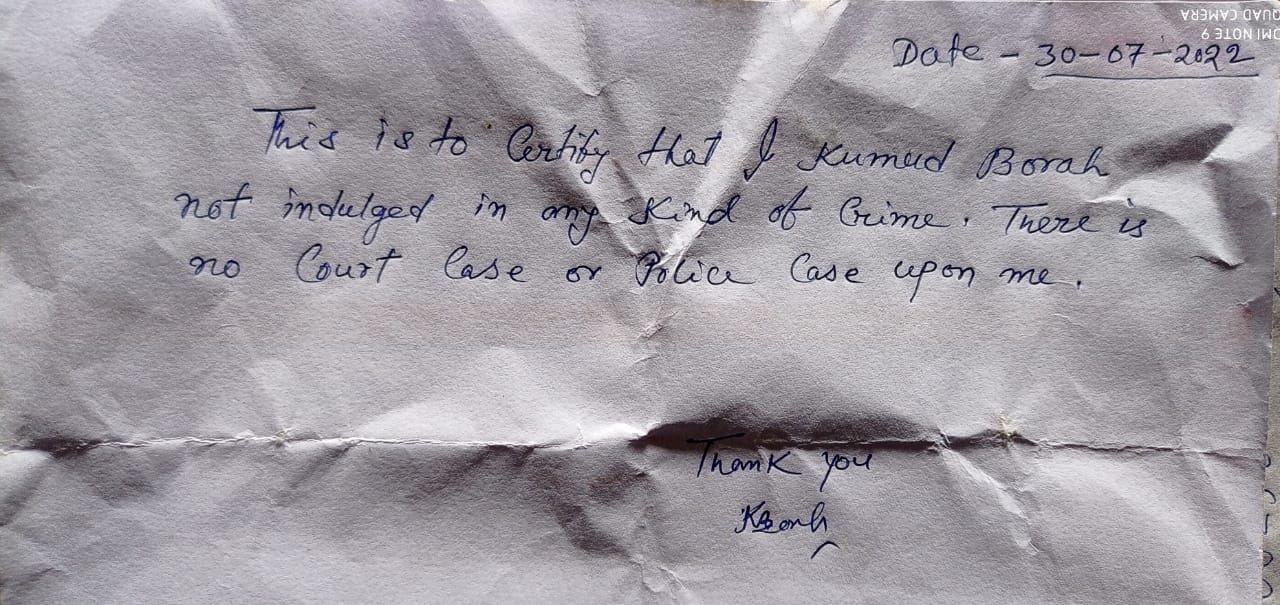 Date - 30-07-2022
This is to Certify that I Kumud Borah
not indulged in any Kind of Crime. There is
no Court Case or Police Case upon me.
Thank you
KBorah
QUAD CAMERA
MI NOTE 9